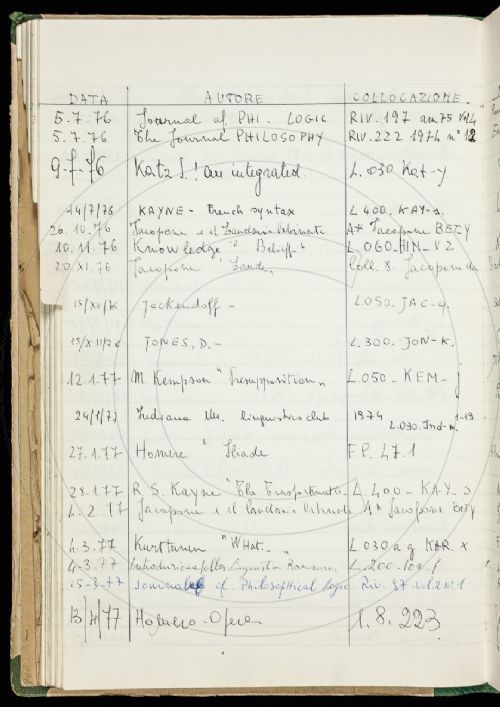 DATA AUTORE COLLOCAZIONE
5.7.76 Journal of PHI. LOGIC RIV. 197 am 75 Vol.4
5.7.76 The Journal PHILOSOPHY RIV. 222 1974 n° 12
9-7-76 Katz J.! an integrated L.030 Kat-y
14/7/76 KAYNE - French syntax L 400. KAY-s.
20.10.76 Jacopone e il A* Jacopone BETY
10.11.76 Knowledge " Belief " L 060-HIN-V2
20.XI.76 Jacopone Coll. 8- Jacopone da
15/XII/76 Jackendoff - L050. JAC-q.
15/XII/76 JONES, D. - L. 300. JON-K.
12.1.77 M. Kempson "Presupposition" L 050 - KEM -
24/1/77 Indiana Un. linguistics club 1974 1-19
L.030. Ind-
27.1.77 Homere " Iliade F.P. 47.1
28.1.77 R S. Kayne "The L. 400 - KAY-s
4.2.77 Jacopone e il A* Jacopone Bety
4.3.77 "What " L 030 a q x
4-3.77 Introduzione Linguist. Romanza L.200.
25-3-77 Journal of Philosophical Logic Riv. 97 vol. 2 N° 1
13/4/77 Homero - Opera 1. 8. 223